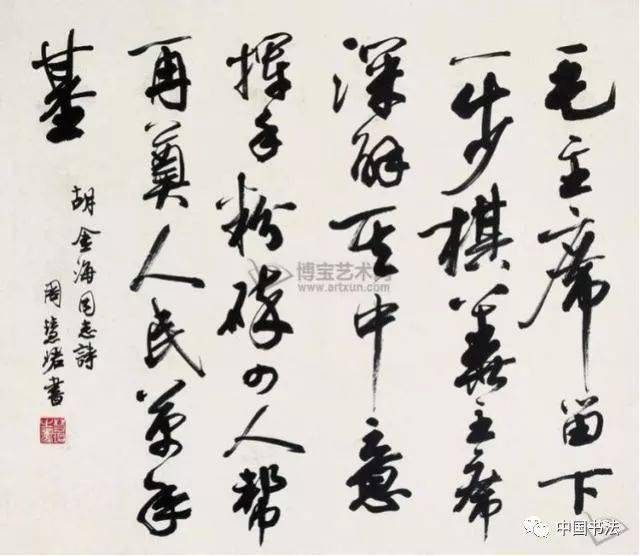 毛主席留下
一步棋华主席
深解其中意
挥手粉碎四人帮
再奠人民万年
基
胡金海同志詩
周慧珺書
博宝艺术网
www.artxun.com
中国书法